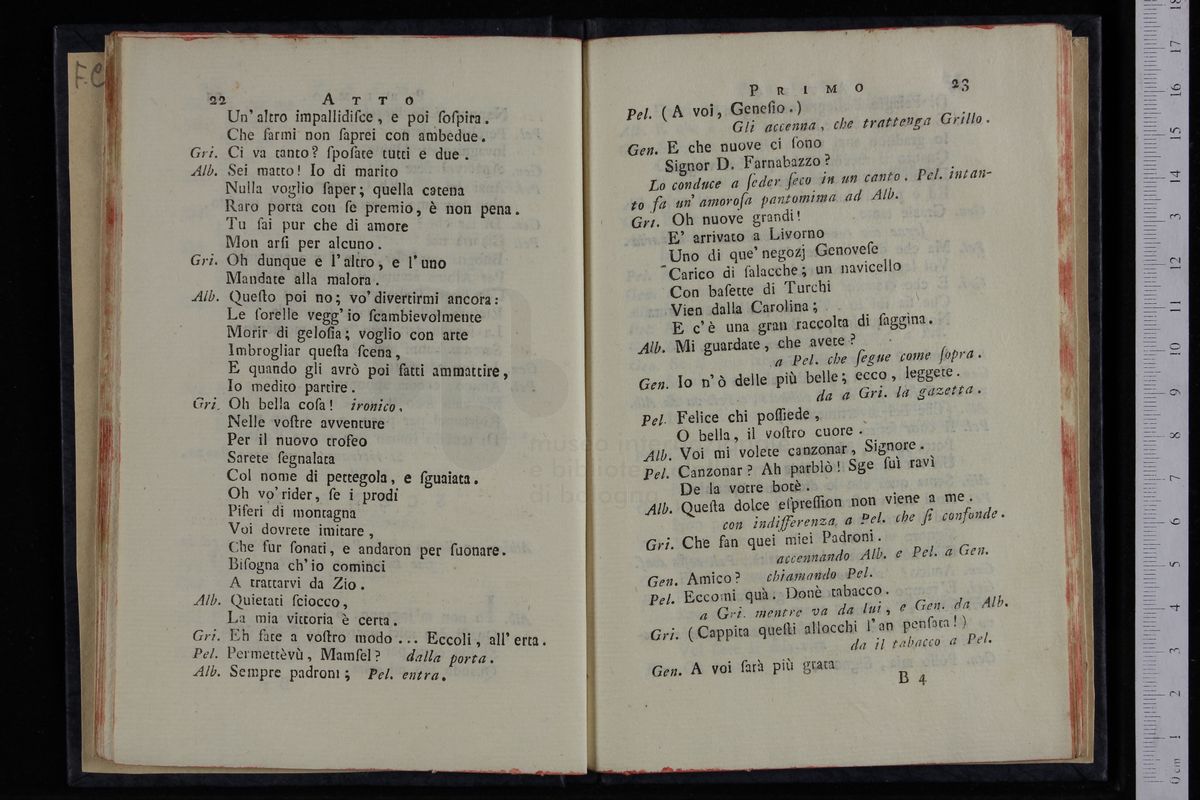 F.C
22 ATTO
Un' altro impallidiſce, e poi ſoſpira.
Che farmi non ſaprei con ambedue.
Gri. Ci va tanto? ſpoſate tutti e due.
Alb. Sei matto! Io di marito
Nulla voglio ſaper; quella catena
Raro porta con ſe premio, è non pena.
Tu ſai pur che di amore
Mon arſi per alcuno.
Gri. Oh dunque e l'altro, e l'uno
Mandate alla malora.
Alb. Queſto poi no; vo' divertirmi ancora:
Le ſorelle vegg' io ſcambievolmente
Morir di geloſia; voglio con arte
Imbrogliar queſta ſcena,
E quando gli avrò poi fatti ammattire,
Io medito partire.
Gri. Oh bella coſa! ironico.
Nelle voſtre avventure
Per il nuovo trofeo
Sarete ſegnalata
Col nome di pettegola, e ſguaiata.
Oh vo' rider, ſe i prodi
Piferi di montagna
Voi dovrete imitare,
Che fur ſonati, e andaron per ſuonare.
Biſogna ch' io cominci
A trattarvi da Zio.
Alb. Quietati ſciocco,
La mia vittoria è certa.
Gri. Eh fate a voſtro modo ... Eccoli, all' erta.
Pel. Permettèvù, Mamſel? dalla porta.
Alb. Sempre padroni; Pel. entra.
PRIMO 23
Pel. (A voi, Geneſio.)
Gli accenna, che trattenga Grillo.
Gen. E che nuove ci ſono
Signor D. Farnabazzo?
Lo conduce a ſeder ſeco in un canto. Pel. intan-
to fa un' amoroſa pantomima ad Alb.
Gri. Oh nuove grandi!
E' arrivato a Livorno
Uno di que' negozj Genoveſe
Carico di ſalacche; un navicello
Con baſette di Turchi
Vien dalla Carolina;
E c'è una gran raccolta di ſaggina.
Alb. Mi guardate, che avete?
a Pel. che ſegue come ſopra.
Gen. Io n'ò delle più belle; ecco, leggete.
da a Gri. la gazetta.
Pel. Felice chi poſſiede,
O bella, il voſtro cuore.
Alb. Voi mi volete canzonar, Signore.
Pel. Canzonar? Ah parblò! Sge ſuì ravì
De la votre botè.
Alb. Queſta dolce eſpreſſion non viene a me.
con indifferenza, a Pel. che ſi confonde.
Gri. Che fan quei miei Padroni.
accennando Alb. e Pel. a Gen.
Gen. Amico? chiamando Pel.
Pel. Eccomi quà. Donè tabacco.
a Gri. mentre va da lui, e Gen. da Alb.
Gri. (Cappita queſti allocchi l'an penſata!)
da il tabacco a Pel.
Gen. A voi ſarà più grata
B 4